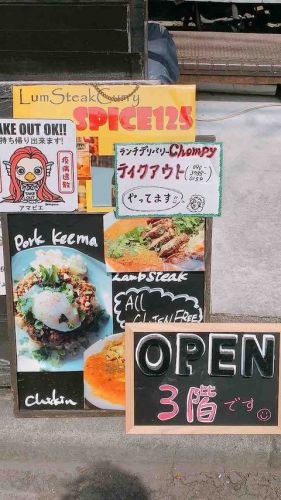 LamSteakCurry
SPICE125
AKE OUT OK!!
持ち帰り出来ます!
疫病退散
アマビエ
ランチデリバリー Chompy
テイクアウト
やってます
Pork Keema
LambSTEAK
All
GlutenFREE
Chikin
OPEN
3階です